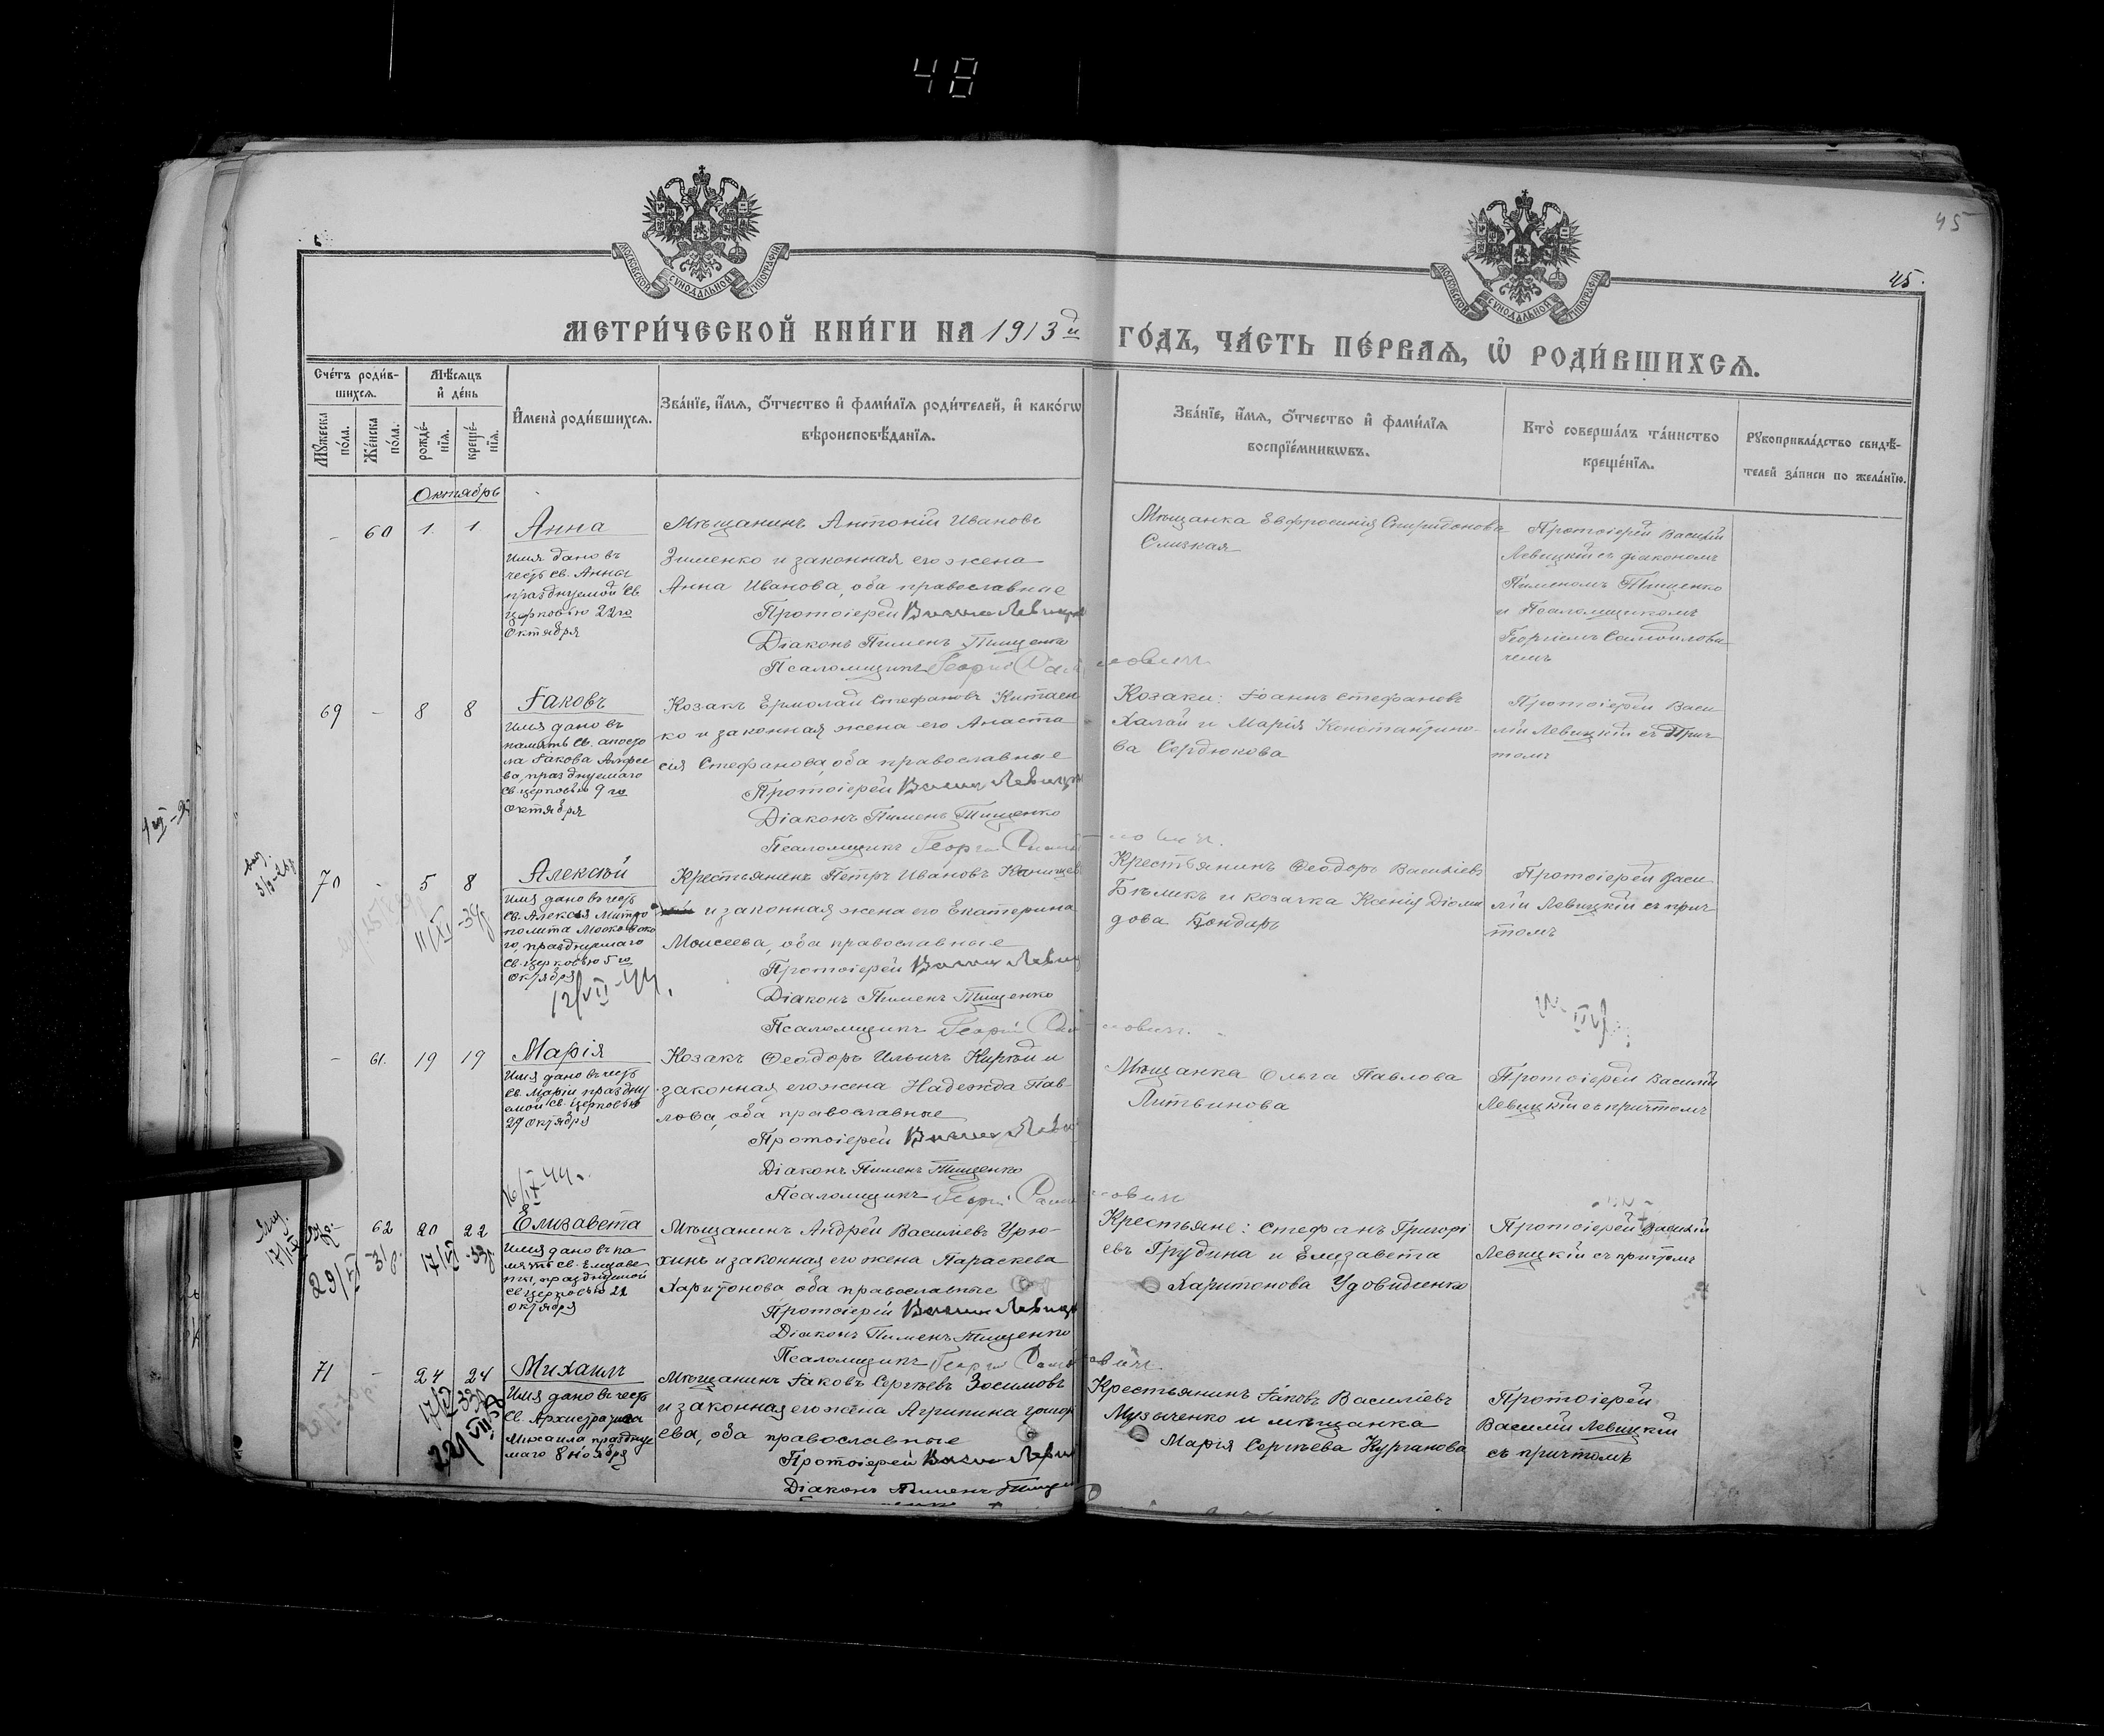 48
45
45.
МОСКОВСКОЙ СѴНОДАЛЬНОЙ ТИПОГРАФІИ
МОСКОВСКОЙ СѴНОДАЛЬНОЙ ТИПОГРАФІИ
МЕТРИ́ЧЕСКОЙ КНИ́ГИ НА 1913й ГО́ДЪ, ЧА́СТЬ ПЕ́РВАѦ, Ѡ҆ РОДИ́ВШИХСѦ.
Сче́тъ роди́в-
шихсѧ.
Мꙋжеска по́ла.
Же́нска по́ла.
Мѣ́сѧцъ и҆ де́нь
рожде́-нїѧ.
креще́-нїѧ.
И҆мена̀ роди́вшихсѧ.
Зва́нїе, и҆́мѧ, ѻ҆́тчество и҆ фами́лїѧ роди́телей, и҆ како́гѡ
вѣроисповѣ́данїѧ.
Зва́нїе, и҆́мѧ, ѻ҆́тчество и҆ фами́лїѧ
воспрїе́мникѡвъ.
Кто̀ соверша́лъ та́инство
креще́нїѧ.
Рꙋкоприкла́дство свидѣ́-
телей за́писи по жела́нїю.
Октябрь
- 60 1. 1
Анна
Имя дано въ
честь св. Анны
празднуемой св.
церковью 22го
Октября
Мѣщанинъ Антоній Ивановъ
Зименко и законная его жена
Анна Иванова, оба православные
Протоіерей Василій Левицкій
Діаконъ Пименъ Тищенко
Псаломщикъ Георгій Самойловичъ
Мѣщанка Евфросинія Спиридонова
Слизкая
Протоіерей Василій
Левицкій съ діакономъ
Пименомъ Тищенко
и Псаломщикомъ
Георгіемъ Самойлови
чемъ
69 - 8 8
Іаковъ
Имя дано въ
память св. апосто
ла Іакова Алфее
ва, празднуемаго
св. церковью 9го
октября
Козакъ Ермолай Стефановъ Китаен
ко и законная жена его Анаста
сія Стефанова, оба православные
Протоіерей Василій Левицкій
Діаконъ Пименъ Тищенко
Псаломщикъ Георгій Самойловичъ.
Козаки: Іоаннъ Стефановъ
Халай и Марія Константино-
ва Сердюкова
Протоіерей Васи
лій Левицкій съ Прич
томъ
70 - 5 8
11/XI -39
Алексѣй
Имя дано въ честь
св. Алексѣя Митро
полита Московско
го, празднуемаго
св. церковью 5го
Октября
12/VII-44.
Крестьянинъ Петръ Ивановъ Канищев
и законная жена его Екатерина
Моисеева, оба православные
Протоіерей Василій Левицкій
Діаконъ Пименъ Тищенко
Псаломщикъ Георгій Самойловичъ.
Крестьянинъ Ѳеодоръ Василіевъ
Бѣликъ и козачка Ксенія Діоми
дова Бондарь
Протоіерей Васи
лій Левицкій съ прич
томъ
- 61. 19 19
Марія
Имя дано въ честь
св. Маріи празднуе
емой св. церковью
29 октября
16/IX-44.
Козакъ Ѳеодоръ Ильичъ Кирѣй и
законная его жена Надежда Пав-
лова, оба православные
Протоіерей Василій Левицкій
Діаконъ Пименъ Тищенко
Псаломщикъ Георгій Самойловичъ
Мѣщанка Ольга Павлова
Литвинова
Протоіерей Василій
Левицкій съ причтомъ
62 20 22
29/VI -31
17/VI -39
Елизавета
Имя дано въ па
мять св. Елизаве
ты, празднуемой
св. церковью 22
октября
Мѣщанинъ Андрей Василіевъ Урю-
пинъ и законная его жена Параскева
Харитонова оба православные
Протоіерей Василій Левицкій
Діаконъ Пименъ Тищенко
Псаломщикъ Георгій Самойловичъ.
Крестьяне: Стефанъ Григорі
евъ Грудина и Елизавета
Харитонова Удовиденко
Протоіерей Василій
Левицкій съ причтомъ
71 - 24 24
Михаилъ
Имя дано въ честь
св. Архистратига
Михаила празднуе
маго 8 ноября
Мѣщанинъ Іаковъ Сергѣевъ Зосимовъ
и законная его жена Агрипина Григор
ева, оба православные
Протоіерей Василій Левицкій
Діаконъ Пименъ Тищенко
Крестьянинъ Іаковъ Василіевъ
Музыченко и мѣщанка
Марія Сергѣева Курганова
Протоіерей
Василій Левицкій
съ причтомъ